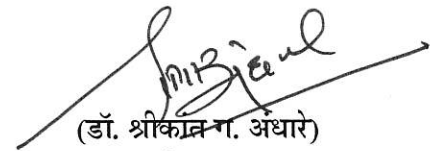 (डॉ. श्रीकांत ग. अंधारे)